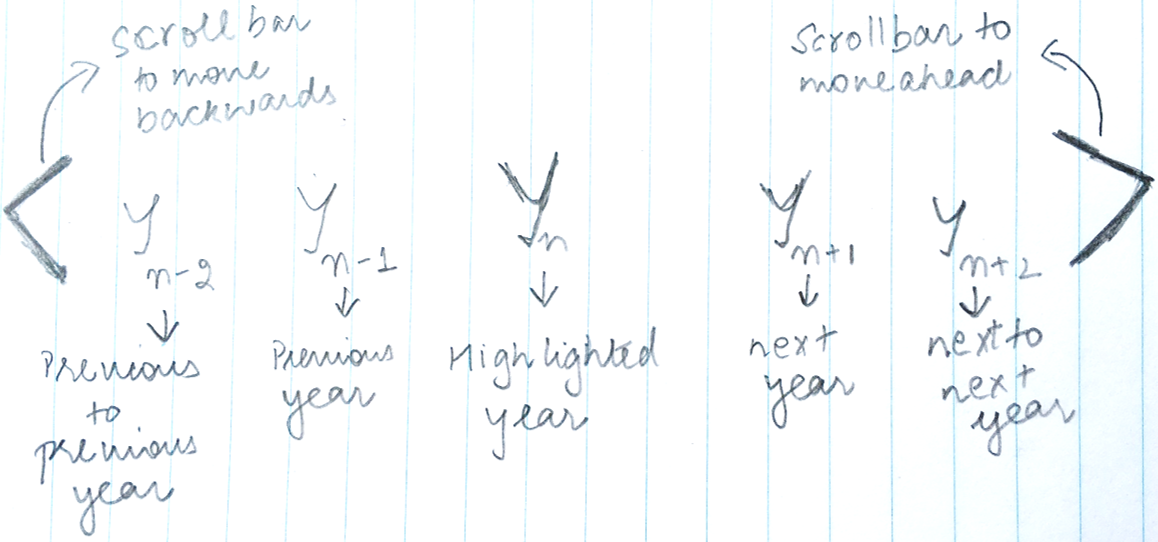 scroll bar
to move
backwards
Scrollbar to
move ahead
< y n-2 y n-1 Y n y n+1 y n+2 >
Previous
to
previous
year
Previous
year
Highlighted
year
next
year
next to
next
year